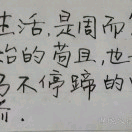 生活,是周而
始的苟且,也
马不停蹄的
奔.